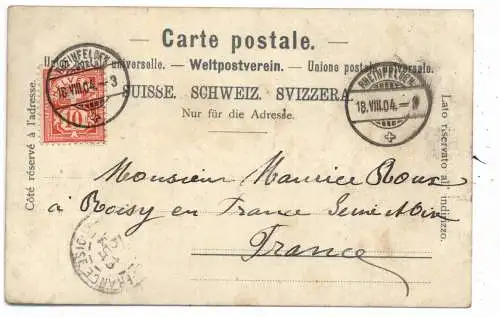 Carte postale.
Union postale universelle. – Weltpostverein. – Unione postale universale.
SUISSE. SCHWEIZ. SVIZZERA.
Nur für die Adresse.
Côté réservé à l'adresse.
Lato riservato all'indirizzo.
RHEINFELDEN
18.VIII.04.–3
10
RHEINFELDEN
18.VIII.04.–
Monsieur Maurice Roux
à Roisy en France Seine & Oise
France